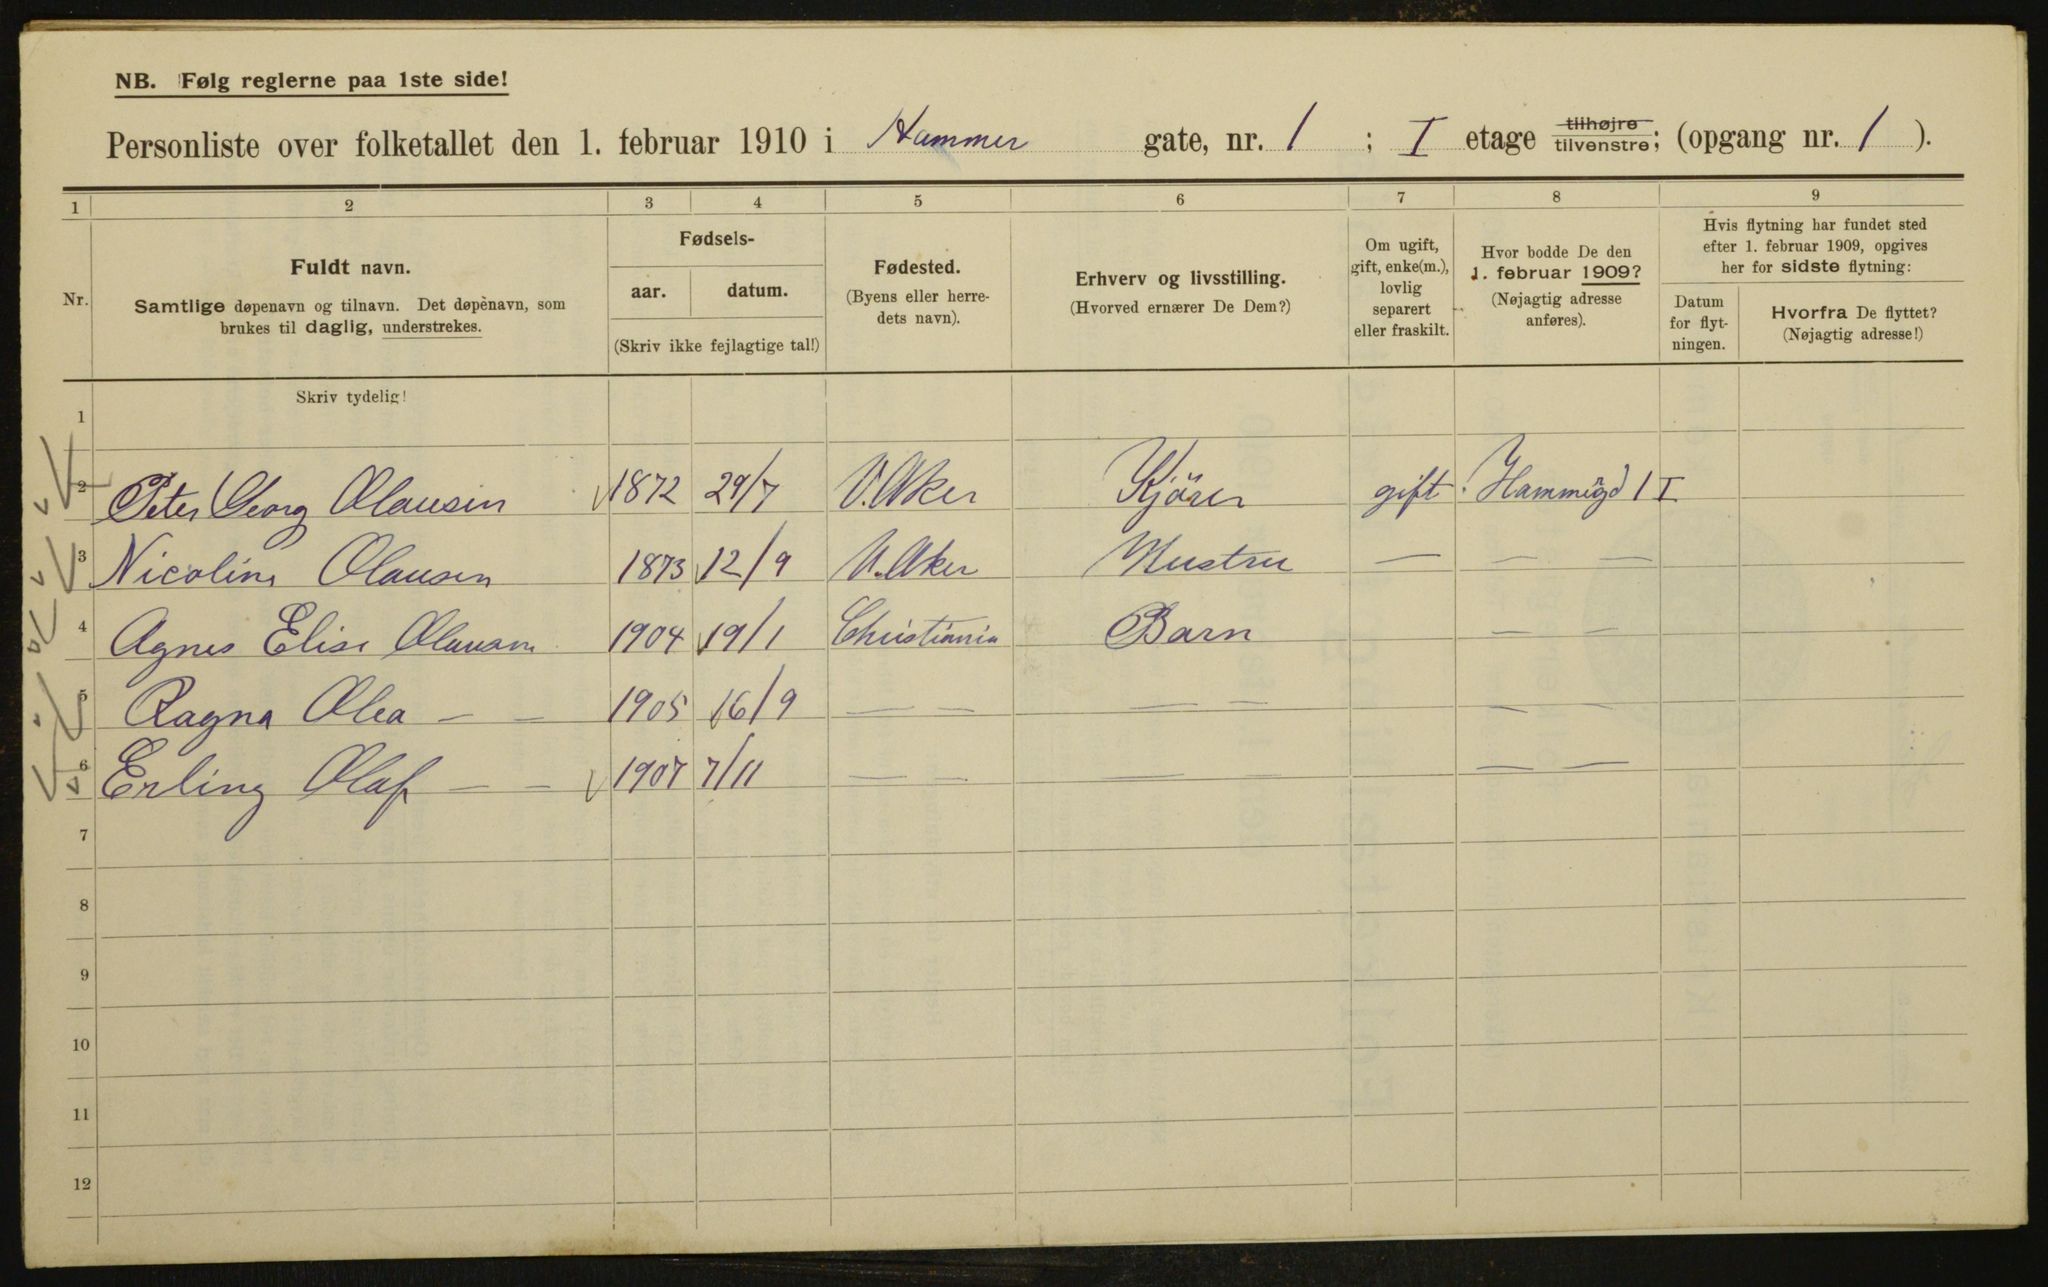 NB. Følg reglerne paa 1ste side!
Personliste over folketallet den 1. februar 1910 i Hammer gate, nr. 1 ; I etage tilhøjre tilvenstre; (opgang nr. 1 ).
1 2 3 4 5 6 7 8 9
Nr.
Fuldt navn.
Samtlige døpenavn og tilnavn. Det døpènavn, som
brukes til daglig, understrekes.
Fødsels-
aar. datum.
(Skriv ikke fejlagtige tal!)
Fødested.
(Byens eller herre-
dets navn).
Erhverv og livsstilling.
(Hvorved ernærer De Dem?)
Om ugift,
gift, enke(m.),
lovlig
separert
eller fraskilt.
Hvor bodde De den
1. februar 1909?
(Nøjagtig adresse
anføres).
Hvis flytning har fundet sted
efter 1. februar 1909, opgives
her for sidste flytning:
Datum
for flyt-
ningen.
Hvorfra De flyttet?
(Nøjagtig adresse!)
Skriv tydelig!
1
2 Peter Georg Olausen 1872 29/7 V.Aker Kjörer gift Hammergd 1 I
3 Nicoline Olausen 1873 12/9 V.Aker Hustru — — —
4 Agnes Elise Olausen 1904 19/1 Christiania Barn — —
5 Ragna Olea — — 1905 16/9 — — — — — —
6 Erling Olaf — — 1907 7/11 — — — — — —
7
8
9
10
11
12